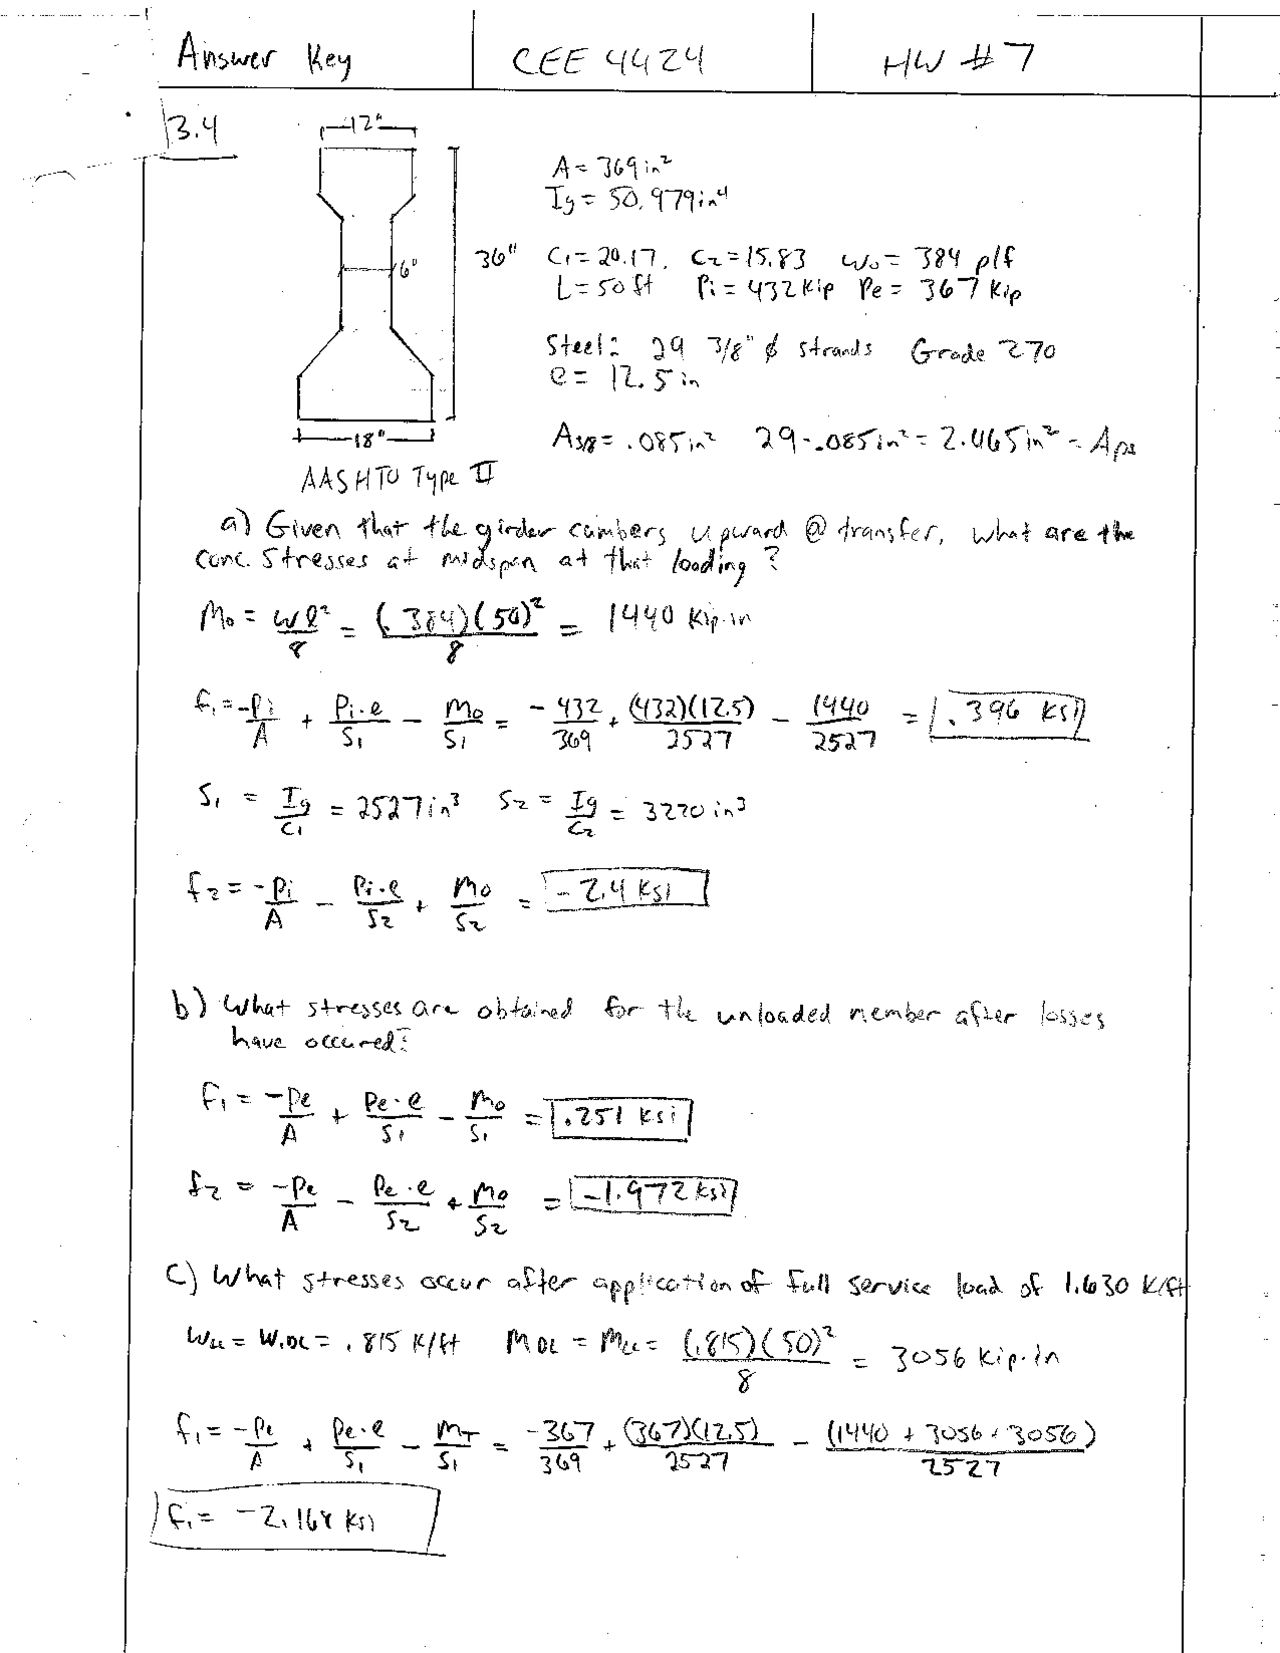 Answer Key CEE 4424 HW #7
3.4
12"
A = 369 in²
Ig = 50,979 in⁴
36" C₁ = 20.17, C₂ = 15.83 w₀ = 384 plf
6"
L = 50 ft Pi = 432 Kip Pe = 367 Kip
Steel: 29 3/8" ϕ strands Grade 270
e = 12.5 in
18"
A3/8 = .085 in² 29 · .085 in² = 2.465 in² = Aps
AASHTO Type II
a) Given that the girder cambers upward @ transfer, what are the
conc. stresses at midspan at that loading?
M₀ = wl²/8 = (.384)(50)²/8 = 1440 Kip·in
f₁ = -Pi/A + Pi·e/S₁ - M₀/S₁ = -432/369 + (432)(12.5)/2527 - 1440/2527 = .396 KSI
S₁ = Ig/C₁ = 2527 in³ S₂ = Ig/C₂ = 3220 in³
f₂ = -Pi/A - Pi·e/S₂ + M₀/S₂ = -2.4 KSI
b) What stresses are obtained for the unloaded member after losses
have occured?
f₁ = -Pe/A + Pe·e/S₁ - M₀/S₁ = .251 KSi
f₂ = -Pe/A - Pe·e/S₂ + M₀/S₂ = -1.972 KSi
C) What stresses occur after application of full service load of 1.630 K/ft
WLL = W.DL = .815 K/ft MDL = MLL = (.815)(50)²/8 = 3056 Kip·in
f₁ = -Pe/A + Pe·e/S₁ - MT/S₁ = -367/369 + (367)(12.5)/2527 - (1440 + 3056 + 3056)/2527
f₁ = -2.168 KSI